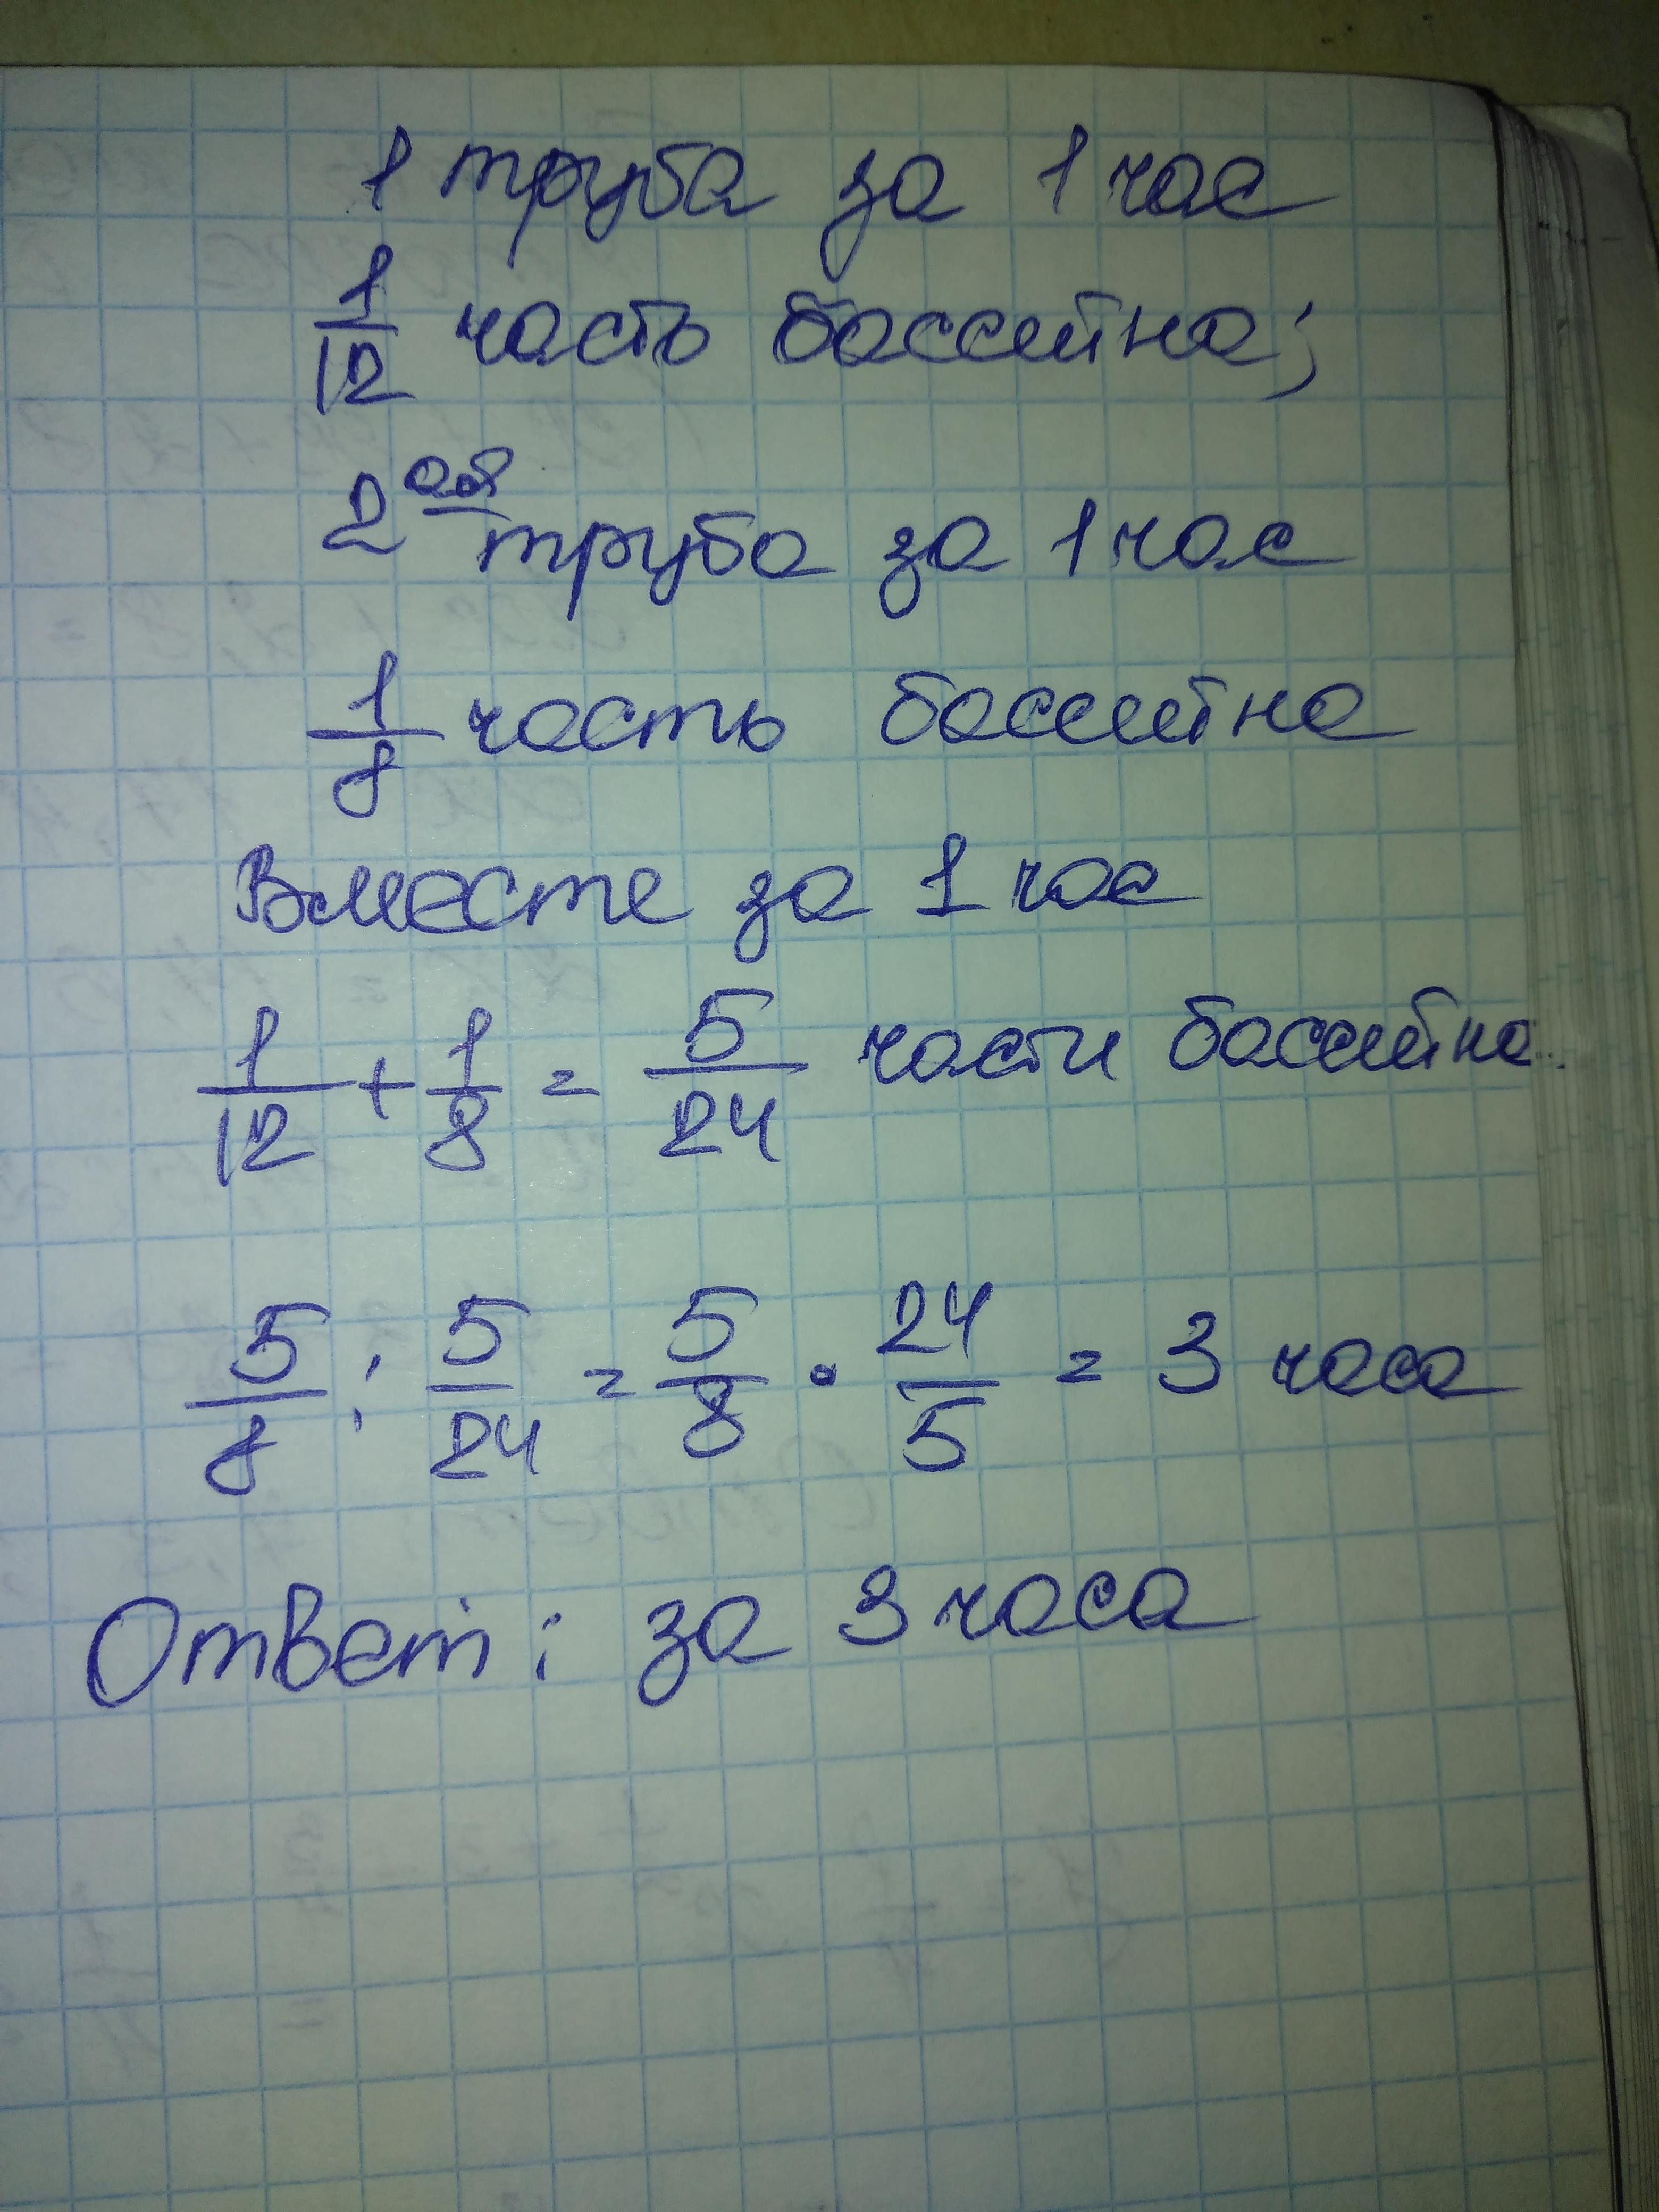 1 труба за 1 час
1/12 часть бассейна;
2ая труба за 1 час
1/8 часть бассейна
Вместе за 1 час
1/12 + 1/8 = 5/24 части бассейна.
5/8 : 5/24 = 5/8 · 24/5 = 3 часа
Ответ: за 3 часа